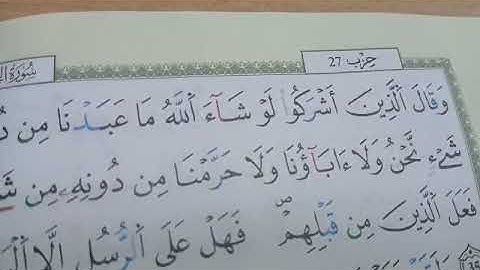 حِزْب 27
سُورَةُ
وَقَالَ ٱلَّذِينَ أَشْرَكُوا۟ لَوْ شَآءَ ٱللَّهُ مَا عَبَدْنَا مِن
شَےْءٖ نَّحْنُ وَلَآ ءَابَآؤُنَا وَلَا حَرَّمْنَا مِن دُونِهِۦ مِن
فَعَلَ ٱلَّذِينَ مِن قَبْلِهِمْ فَهَلْ عَلَى ٱلرُّسُلِ إِلَّا